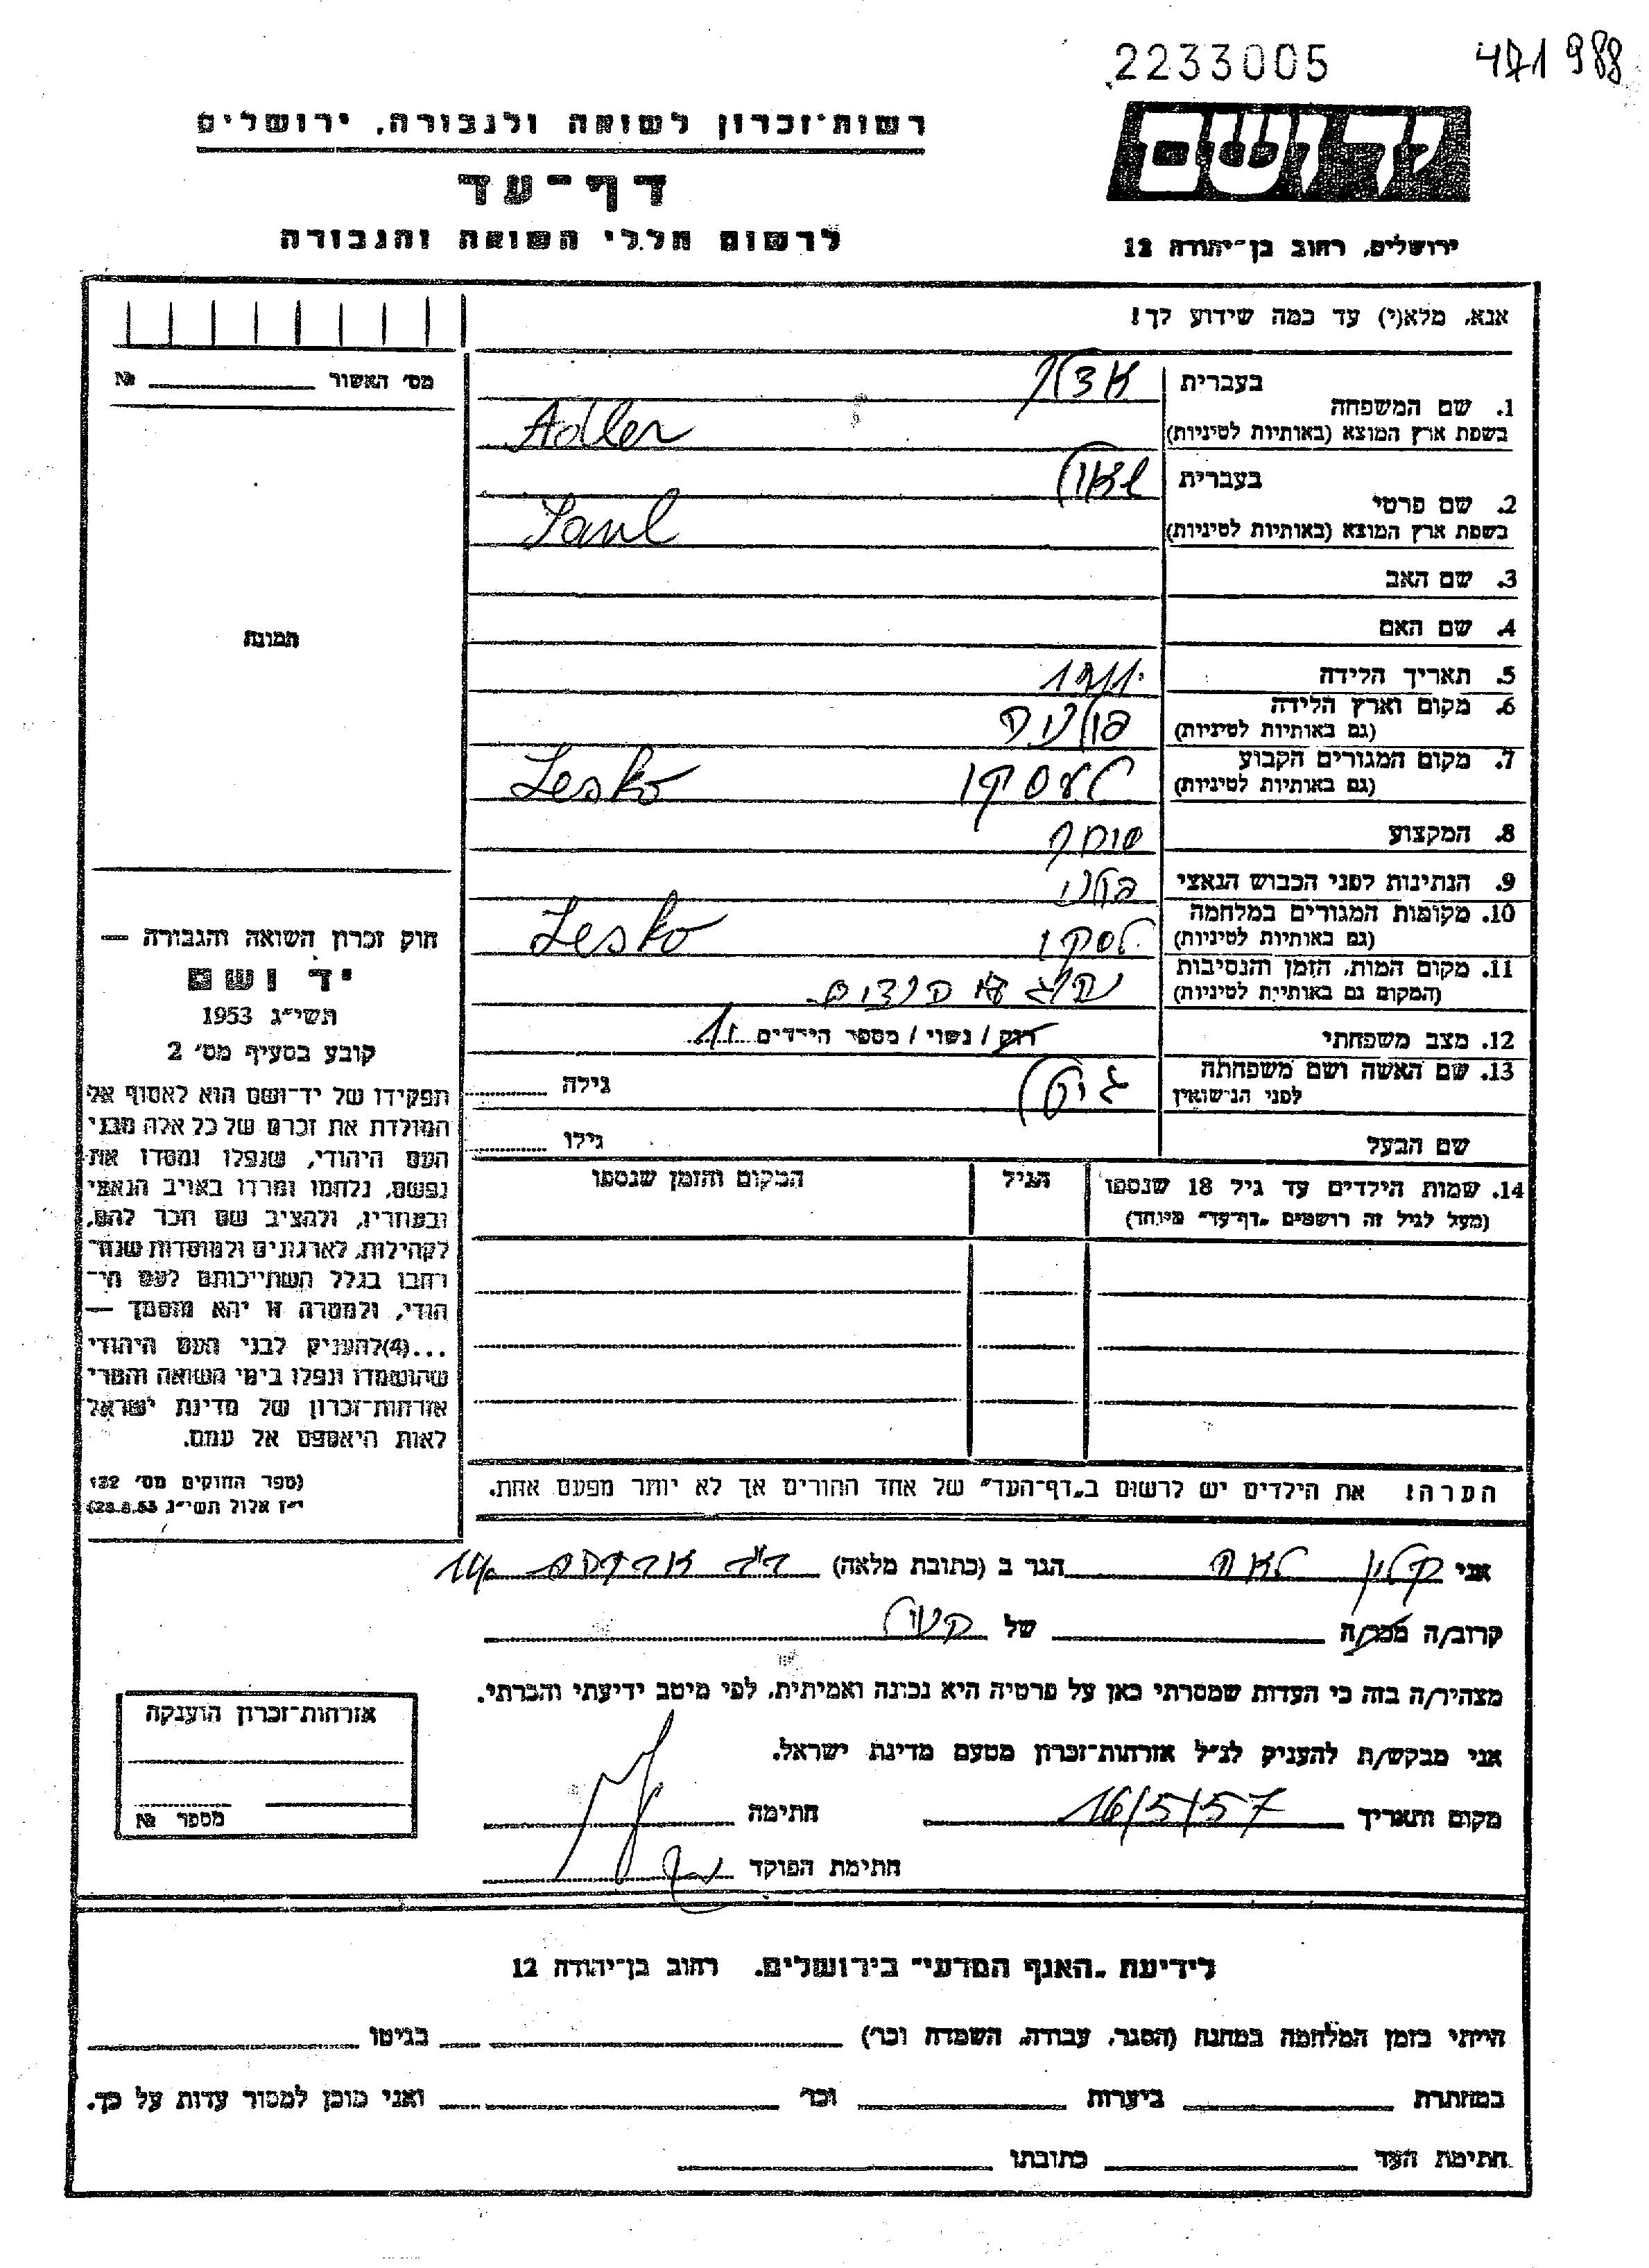 2233005
471988
רשות־זכרון לשואה ולגבורה, ירושלים
יד ושם
דף־עד
לרשום חללי השואה והגבורה
ירושלים, רחוב בן־יהודה 12
אנא, מלא(י) עד כמה שידוע לך!
מס׳ האשור №
1. שם המשפחה
בעברית אדלר
בשפת ארץ המוצא (באותיות לטיניות) Adler
2. שם פרטי
בעברית שאול
בשפת ארץ המוצא (באותיות לטיניות) Saul
3. שם האב
4. שם האם
תמונת
5. תאריך הלידה 1911
6. מקום וארץ הלידה
(גם באותיות לטיניות) פולניה
7. מקום המגורים הקבוע
(גם באותיות לטיניות) לעסקו Lesko
8. המקצוע סוחר
9. הנתינות לפני הכבוש הנאצי פולני
10. מקומות המגורים במלחמה
(גם באותיות לטיניות) לסקו Lesko
11. מקום המות, הזמן והנסיבות
(המקום גם באותיות לטיניות)
12. מצב משפחתי רווק / נשוי / מספר הילדים
13. שם האשה ושם משפחתה
לפני הנישואין גילה
שם הבעל גילו
14. שמות הילדים עד גיל 18 שנספו
(מעל לגיל זה רושמים „דף־עד״ מיוחד)
הגיל
המקום והזמן שנספו
הערה! את הילדים יש לרשום ב„דף־העד״ של אחד ההורים אך לא יותר מפעם אחת.
חוק זכרון השואה והגבורה —
יד ושם
תשי״ג 1953
קובע בסעיף מס׳ 2
תפקידו של יד־ושם הוא לאסוף אל
המולדת את זכרם של כל אלה מבני
העם היהודי, שנפלו ומסרו את
נפשם, נלחמו ומרדו באויב הנאצי
ובעוזריו, ולהציב שם וזכר להם,
לקהילות, לארגונים ולמוסדות שנח־
רבו בגלל השתייכותם לעם הי־
הודי, ולמטרה זו יהא מוסמך —
...(4)להעניק לבני העם היהודי
שהושמדו ונפלו בימי השואה והמרי
אזרחות־זכרון של מדינת ישראל
לאות היאספם אל עמם.
(ספר החוקים מס׳ 132
י״ז אלול תשי״ג 28.8.53)
אני קליין לאה הגר ב (כתובת מלאה)
קרוב/ה מכר/ה של
מצהיר/ה בזה כי העדות שמסרתי כאן על פרטיה היא נכונה ואמיתית, לפי מיטב ידיעתי והכרתי.
אני מבקש/ת להעניק לנ״ל אזרחות־זכרון מטעם מדינת ישראל.
מקום ותאריך 16/5/57 חתימה
חתימת הפוקד
אזרחות־זכרון הוענקה
מספר №
לידיעת „האגף המדעי״ בירושלים, רחוב בן־יהודה 12
הייתי בזמן המלחמה במחנה (הסגר, עבודה, השמדה וכו׳) בגיטו
במחתרת ביערות וכו׳ ואני מוכן למסור עדות על כך.
חתימת העד כתובתו